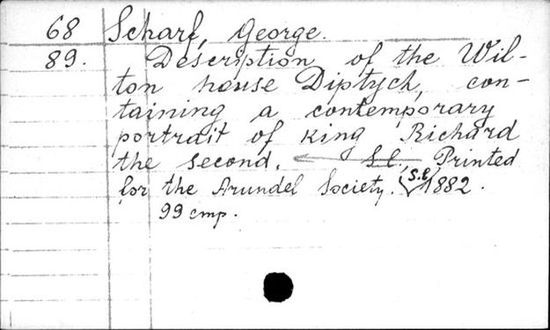 68 Scharf, George.
89. Description of the Wil-
ton house Diptych, con-
taining a contemporary
portrait of King Richard
the second. S.l., Printed
for the Arundel Society. (S.l.) 1882.
99 cmp.